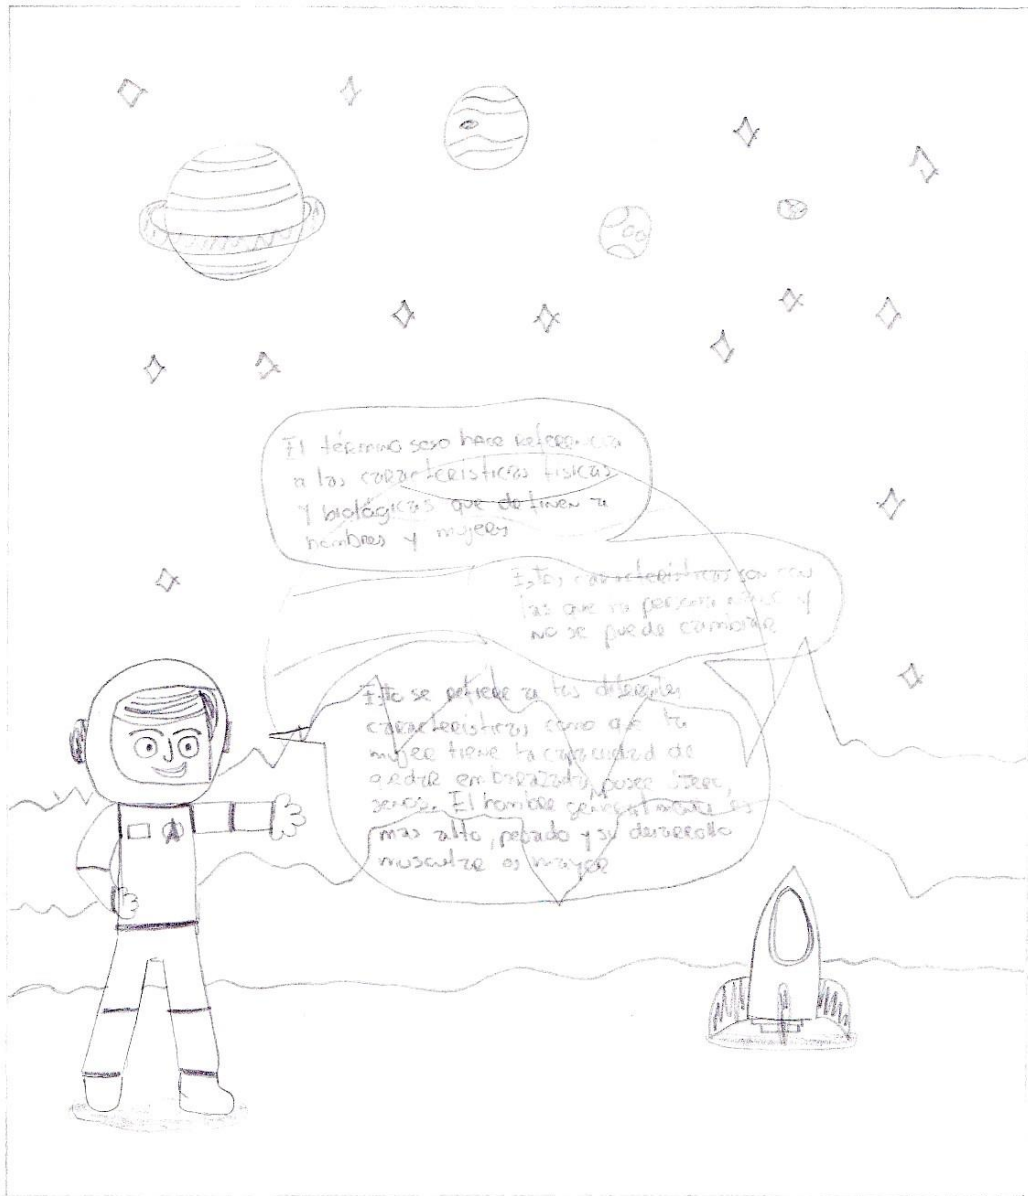 El término sexo hace referencia
a las características físicas
y biológicas que definen a
hombres y mujeres
Estas características son con
las que la persona nace y
no se puede cambiar
Esto se refiere a las diferentes
características como que la
mujer tiene la capacidad de
quedar embarazada, posee útero,
senos. El hombre generalmente es
mas alto, pesado y su desarrollo
muscular es mayor